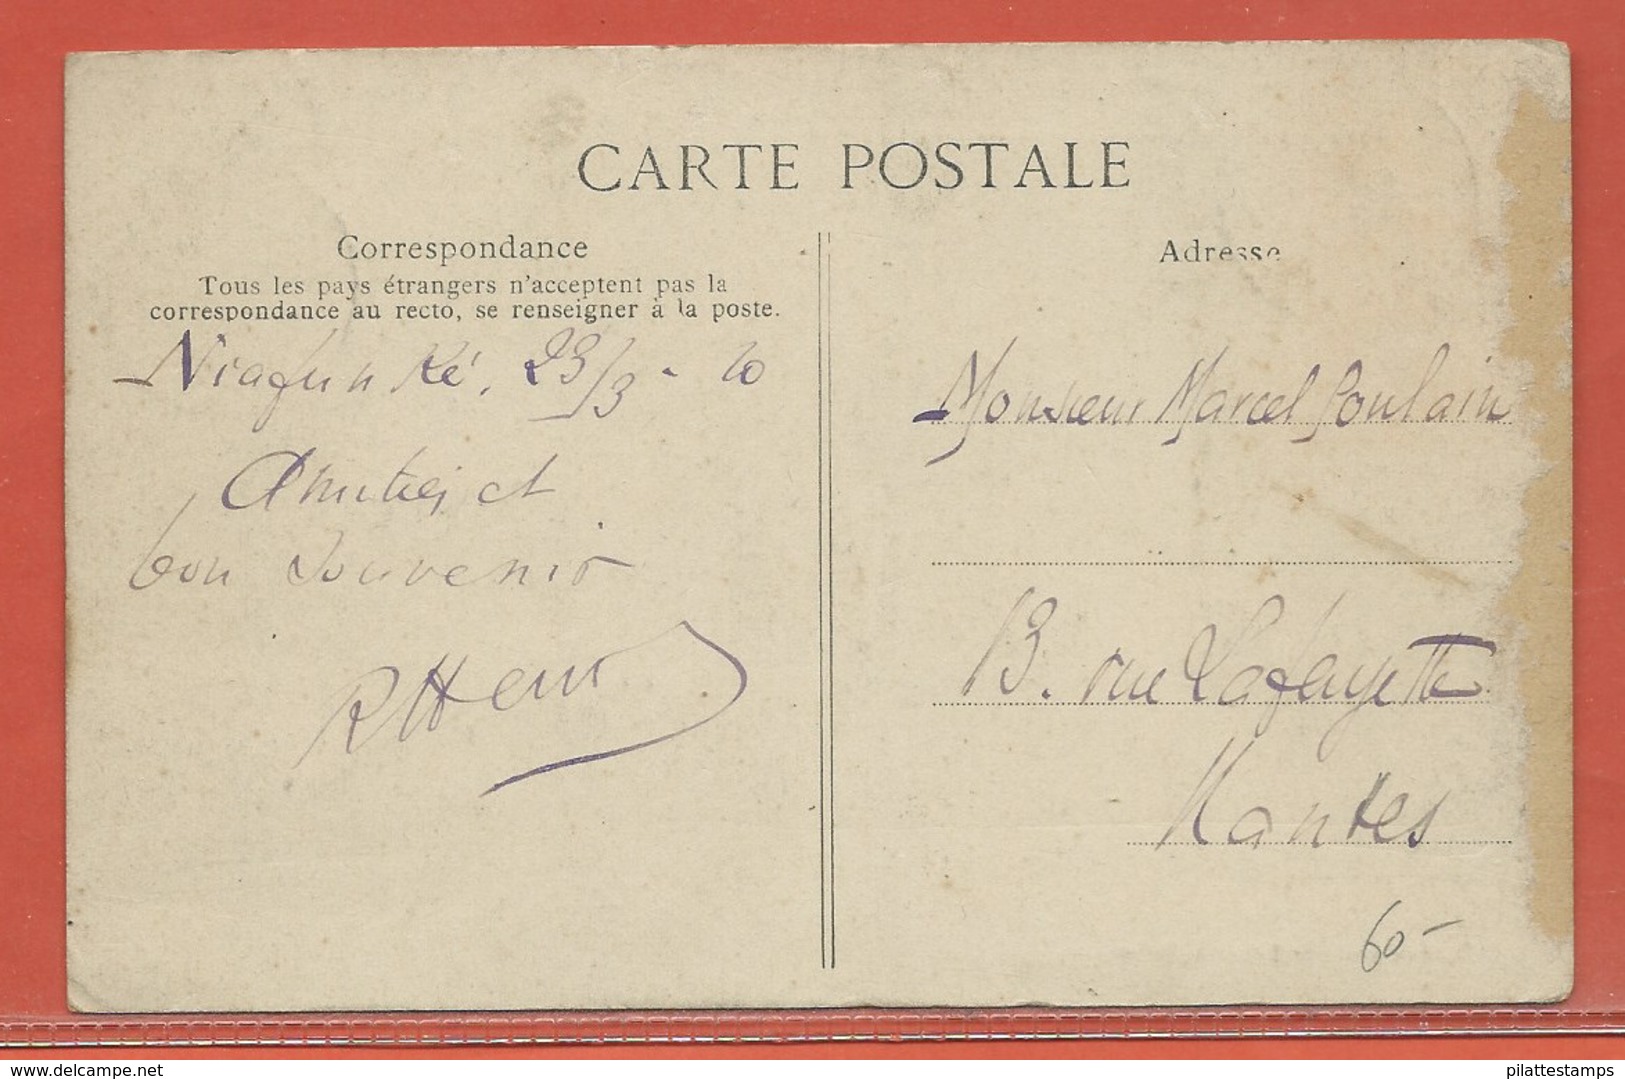 CARTE POSTALE
Correspondance
Tous les pays étrangers n'acceptent pas la
correspondance au recto, se renseigner à la poste.
Niafunké, 23/3 - 10
Amitiés et
bon Souvenir
Adresse
Monsieur Marcel Poulain
13. rue Lafayette
Nantes
60-
delcampe.net
pilattestamps